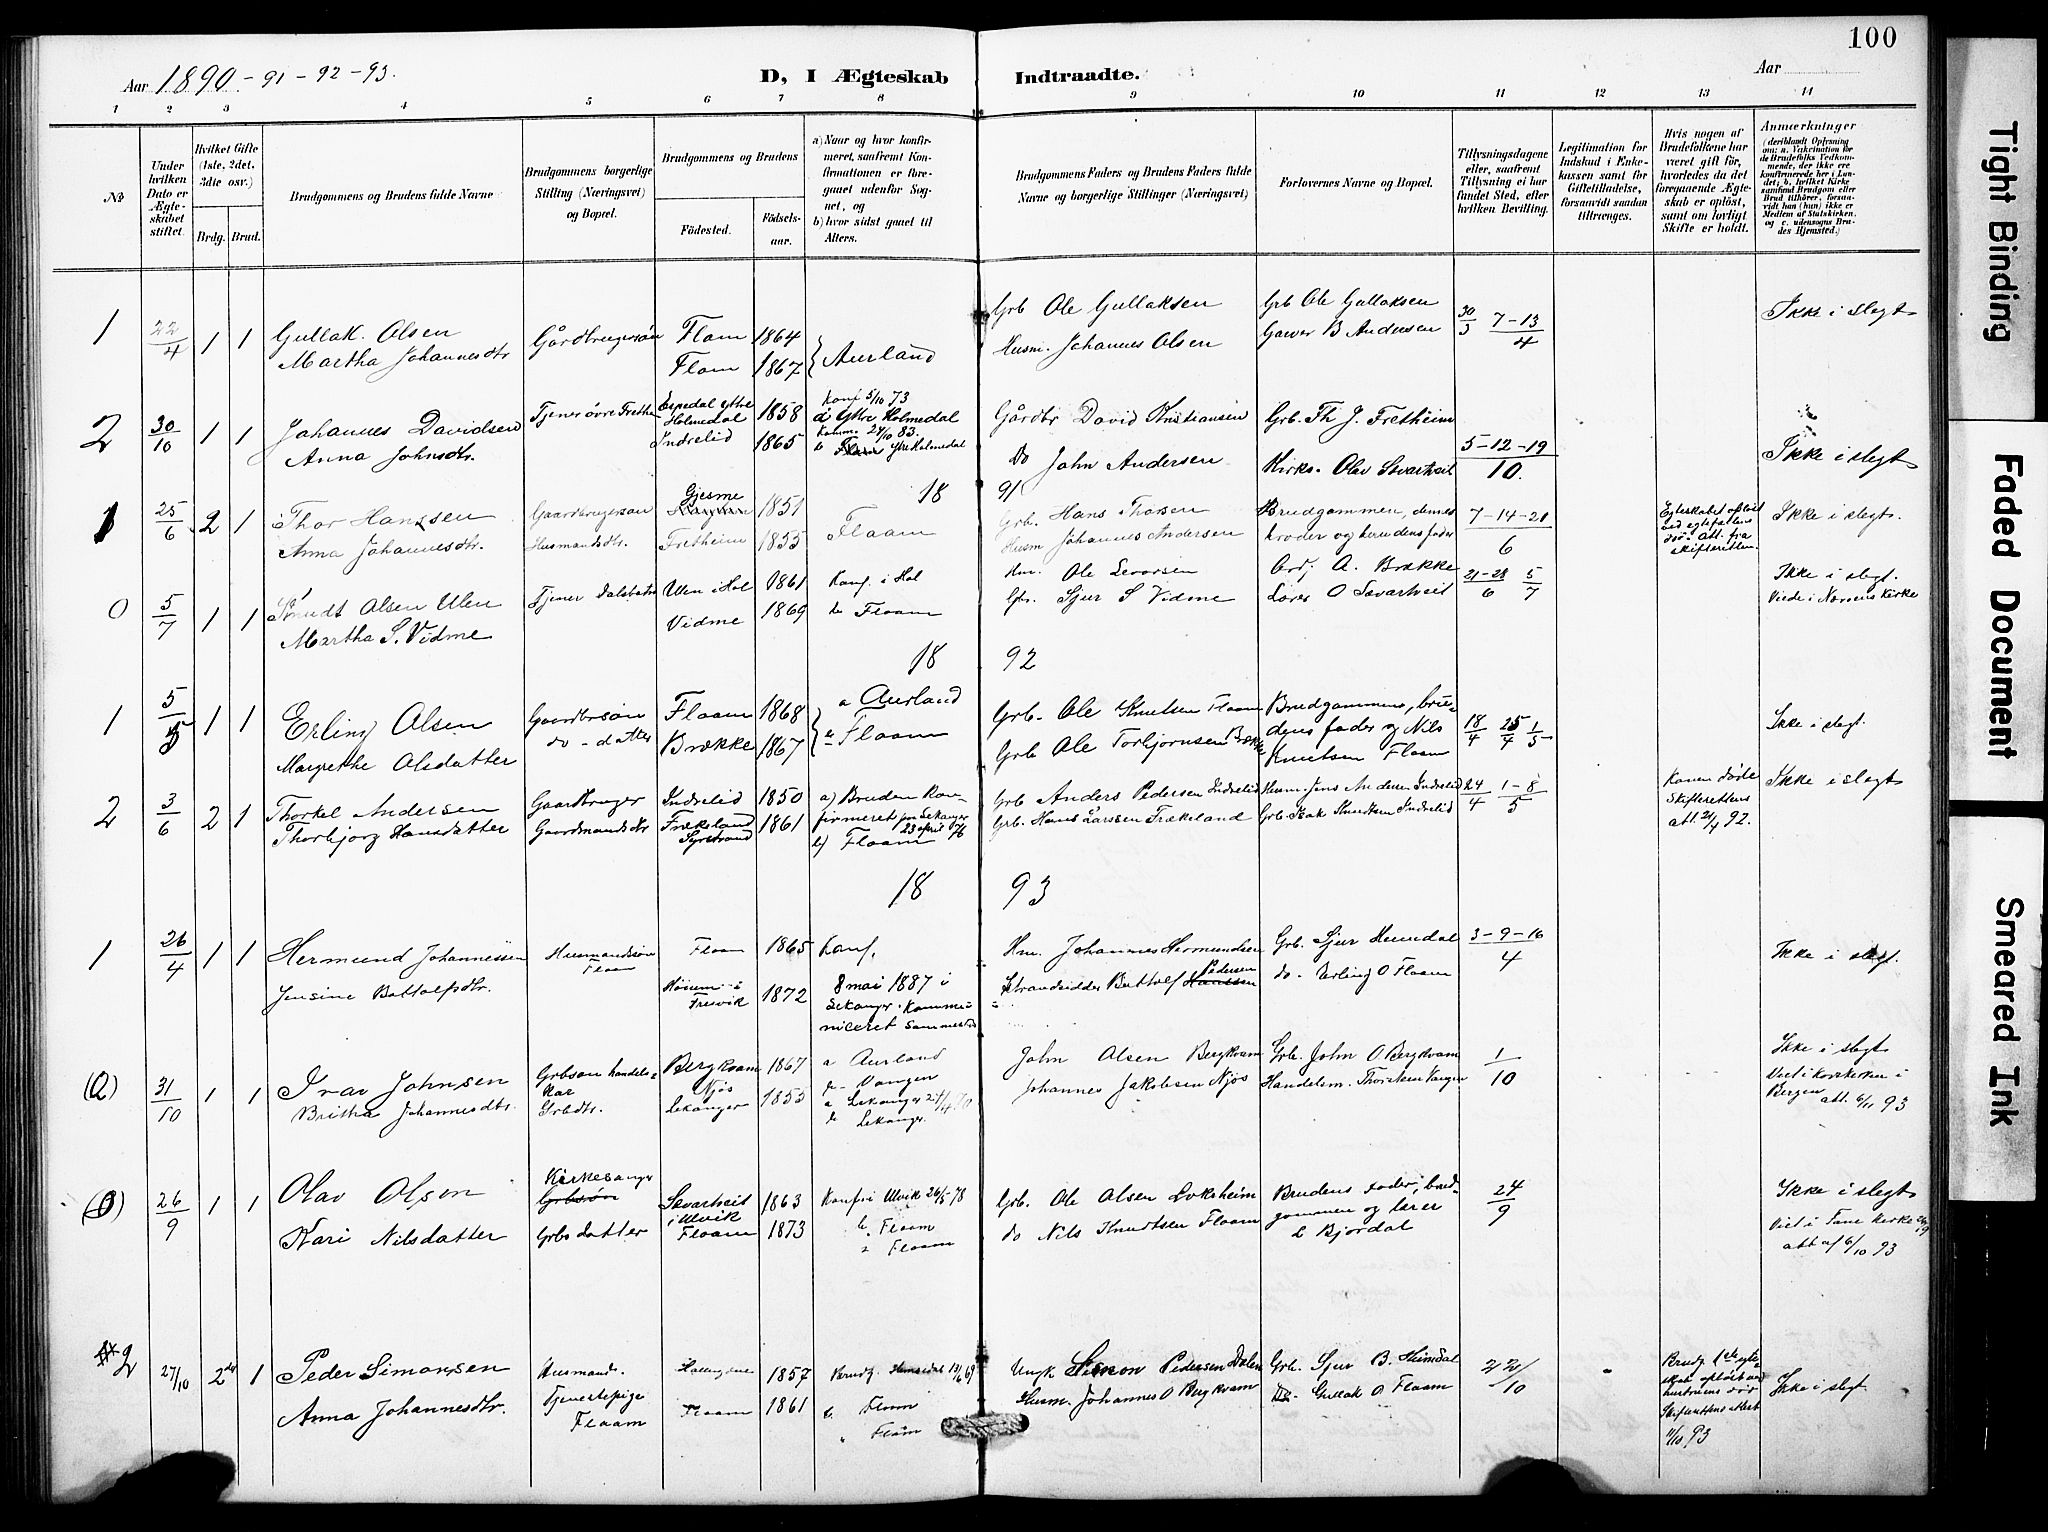 100
Aar 1890 - 91 - 92 - 93.
D, I Ægteskab Indtraadte.
Aar
1 2 3 4 5 6 7 8 9 10 11 12 13 14
№
Under hvilken Dato er Ægteskabet stiftet.
Hvilket Gifte (1ste, 2det, 3die osv.)
Brdg. Brud.
Brudgommens og Brudens fulde Navne
Brudgommens borgerlige Stilling (Næringsvei) og Bopæl.
Brudgommens og Brudens
Fødested.
Fødselsaar.
a) Naar og hvor konfirmeret, saafremt Konfirmationen er foregaaet udenfor Sognet, og b) hvor sidst gaaet til Alters.
Brudgommens Faders og Brudens Faders fulde Navne og borgerlige Stillinger (Næringsvei)
Forlovernes Navne og Bopæl.
Tillysningsdagene eller, saafremt Tillysning ei har fundet Sted, efter hvilken Bevilling.
Legitimation for Indskud i Enkekassen samt for Giftetilladelse, forsaavidt saadan tiltrænges.
Hvis nogen af Brudefolkene har været gift før, hvorledes da det foregaaende Ægteskab er opløst, samt om lovligt Skifte er holdt.
Anmærkninger (deriblandt Oplysning om: a. Vakcination for de Brudefolks Vedkommende, der ikke ere konfirmerede her i Landet; b. hvilket Kirkesamfund Brudgom eller Brud tilhører, forsaavidt han (hun) ikke er Medlem af Statskirken, og c. udensogns Brudes Hjemsted.)
1 22/4 1 1 Gullak. Olsen Gårdbrugersøn Flom 1864 Grb Ole Gullaksen Grb Ole Gullaksen 30/3 7-13/4 Ikke i slegt
Martha Johannesdtr Flom 1867 Aurland Husm. Johannes Olsen B Andersen
2 30/10 1 1 Johannes Davidsen Tjener øvre Fretheim Espedal ytre Holmedal 1858 Konf 5/10 73 i Ytre Holmedal Gårdbr David Kristiansen Grb. Th J. Fretheim 5-12-19/10. Ikke i slegt
Anna Johnsdtr. Indrelid 1865 Do John Andersen Kirks. Olav Svartveit
18 91
1 25/6 2 1 Thor Hanssen Gaardbrugersøn Gjesme 1851 Flaam Grb. Hans Thorsen Brudgommen, dennes 7-14-21/6 Egteskabet opløst ved egtefællens død. Att. fra skifteretten. Ikke i slegt.
Anna Johannesdtr. Husmandsdtr. Fretheim 1855 Husm Johannes Andersen broder og brudens fader
0 5/7 1 1 Olsen Ulen Tjener Ulen i Hol 1861 Konf. i Hol Hm. Ole Levorsen A. Brække 21-28/6 5/7 Ikke i slegt.
Martha S. Vidme Vidme 1869 b Flaam Gbr. Sjur S Vidme Lærer O Svartveit Viede i Kirke
18 92
1 5/5 1 1 Erling Olsen Gaardbrsøn Flaam 1868 a Aurland Grb. Ole Knutsen Flaam Brudgommens, brudens fader og Nils Knutsen Flaam 18/4 25/4 1/5 Ikke i slegt.
Margrethe Olsdatter do - datter Brække 1867 b Flaam Grb Ole Torbjørnsen Brække
2 3/6 2 1 Thorkel Andersen Gaardbruger Indrelid 1850 a) Bruden konfirmeret 23 april 76 Grb Anders Pedersen Indrelid Husm. Jens Andersen Indrelid 24/4 1-8/5 Konen døde Skifterettens att. 21/4 92. Ikke i slegt
Thorbjørg Hansdatter Gaardmandsdtr Frækeland 1861 b) Flaam Grb. Hans Larssen Frækeland Grb. Isak Knudtsen Indrelid
18 93
1 26/4 1 1 Hermund Johannessen Husmandssøn Flaam Flaam 1865 Konf. Hm. Johannes Hermundsen Grb. Sjur Heimdal 3-9-16/4 Ikke i slegt.
Jensine Bottolfsdtr. 1872 8 mai 1887 i Lekanger. Kommuniceret sammesteds Strandsidder Bottolf Pedersen do. Erling O Flaam
(2) 31/10 1 1 Ivar Johnsen Grbsøn handelskar Bergkvam 1867 a Aurland b - Vangen John Olsen Bergkvam Grb. John O Bergkvam 1/10 Ikke i slegt
Britha Johannesdtr. Grbdtr. Njøs Lekanger 1855 a Lekanger b Lekanger. Johannes Jakobsen Njøs Handelsm. Thorstein Vangen Viet i Korskirken i Bergen att. 6/11 93
26/9 1 1 Olav Olsen Kirkesanger Svartveit i Ulvik 1863 Konf i Ulvik 26/5 78 b. Flaam Grb. Ole Olsen Loksheim Brudens Fader, brudgommen og lærer L Bjørdal 24/9 Ikke i slegt
Kari Nilsdatter Grbs datter Flaam 1873 Flaam do Nils Knudtsen Flaam Viet i kirke att af 6/10 93
2 27/10 2det 1 Peder Simonsen Husmand 1857 Brudg. Simon Pedersen Dalen Grb. Sjur B. Heimdal 22/10 Brudg. 1ste egteskab opløst ved hustruens død Skifterettens attest 11/10 93 Ikke i slegt.
Anna Johannesdtr. Tjenestepige Flaam Flaam 1861 b. Flaam Husm. Johannes O Bergkvam Do. Gullak O Flaam
Tight Binding
Faded Document
Smeared Ink